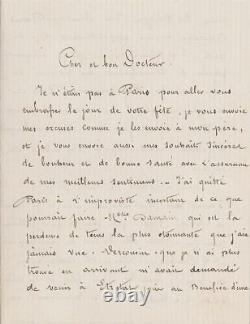 Cher et bon Docteur.
Je n'étais pas à Paris pour aller vous
embrasser le jour de votre fête, je vous envoie
mes excuses comme je les envoie à mon père,
et je vous envoie aussi mes souhaits sincères
de bonheur et de bonne santé avec l'assurance
de mes meilleurs sentiments... J'ai quitté
Paris à l'improviste incertain de ce que
pourrait faire qui est la
perdeuse de temps la plus étonnante que j'aie
jamais vue. que je n'ai plus
trouvé en arrivant m'avait demandé
de venir à Etretat au Bénéfice d'une